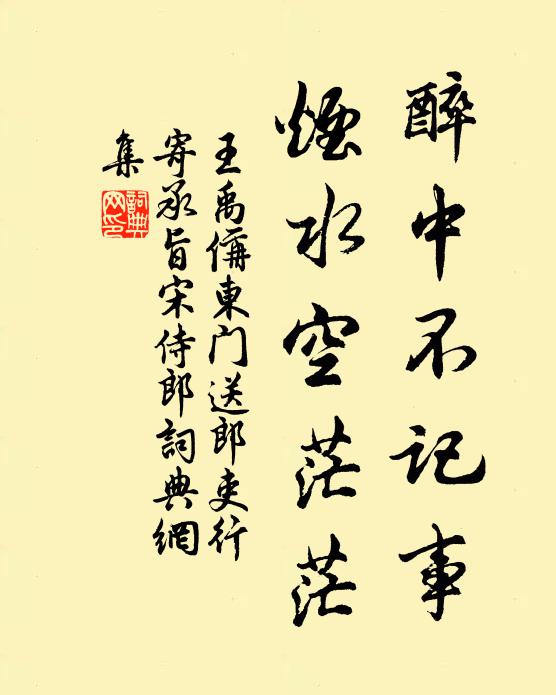 醉中不記事
煙水空茫茫
王禹偁東門送郎吏行
寄承旨宋侍郎詞典網
集
詞典網印